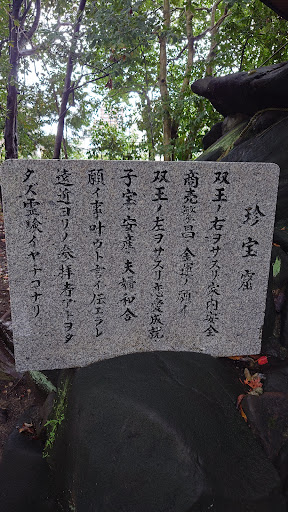 珍宝窟
双玉ノ右ヲサスリ家内安全
商売繁昌金運ノ願イ
双玉ノ左ヲサスリ恋愛成就
子宝安産夫婦和合
願イ事叶ウト言イ伝エラレ
遠近ヨリノ参拝者アトヲタ
タズ霊験イヤチコナリ